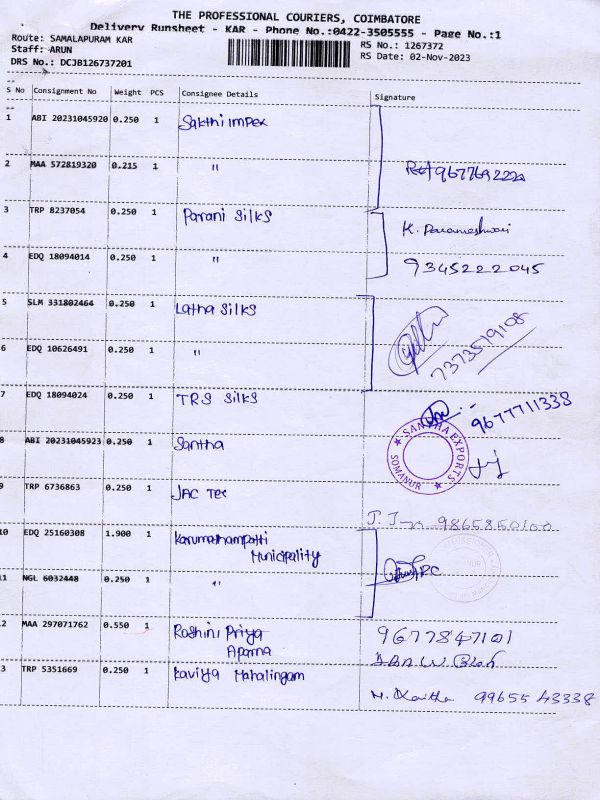 THE PROFESSIONAL COURIERS, COIMBATORE
Delivery Runsheet - KAR - Phone No.:0422-3505555 - Page No.:1
Route: SAMALAPURAM KAR
Staff: ARUN
DRS No.: DCJB126737201
RS No.: 1267372
RS Date: 02-Nov-2023
S No Consignment No Weight PCS Consignee Details Signature
1 ABI 20231045920 0.250 1 Sakthi impex
2 MAA 572819320 0.215 1 "
3 TRP 8237054 0.250 1 Parani Silks K. Parameshwari
4 EDQ 18094014 0.250 1 " 9345222045
5 SLM 331802464 0.250 1 Latha Silks
7373579108
6 EDQ 10626491 0.250 1 "
7 EDQ 18094024 0.250 1 TRS Silks 9677711338
8 ABI 20231045923 0.250 1 Santha
SANTHA EXPORTS
SOMANUR
9 TRP 6736863 0.250 1 JAC Tex
10 EDQ 25160308 1.900 1 Karumathampatti
Municipality
11 NGL 6032448 0.250 1 "
2 MAA 297071762 0.550 1 Roshini Priya 9677847101
Aparna
3 TRP 5351669 0.250 1 Kavitha Mahalingam
99655 43338